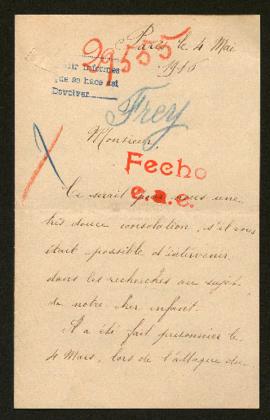 29555
Paris le 4 Mai
1915
Pedir informes
que se hace así
Devolver
Frey
Monsieur,
Fecho
e.a.c.
Ce serait pour nous une
très douce consolation, s'il vous
était possible d'intervenir
dans les recherches au sujet
de notre cher enfant.
Il a été fait prisonnier le
4 Mars, lors de l'attaque du